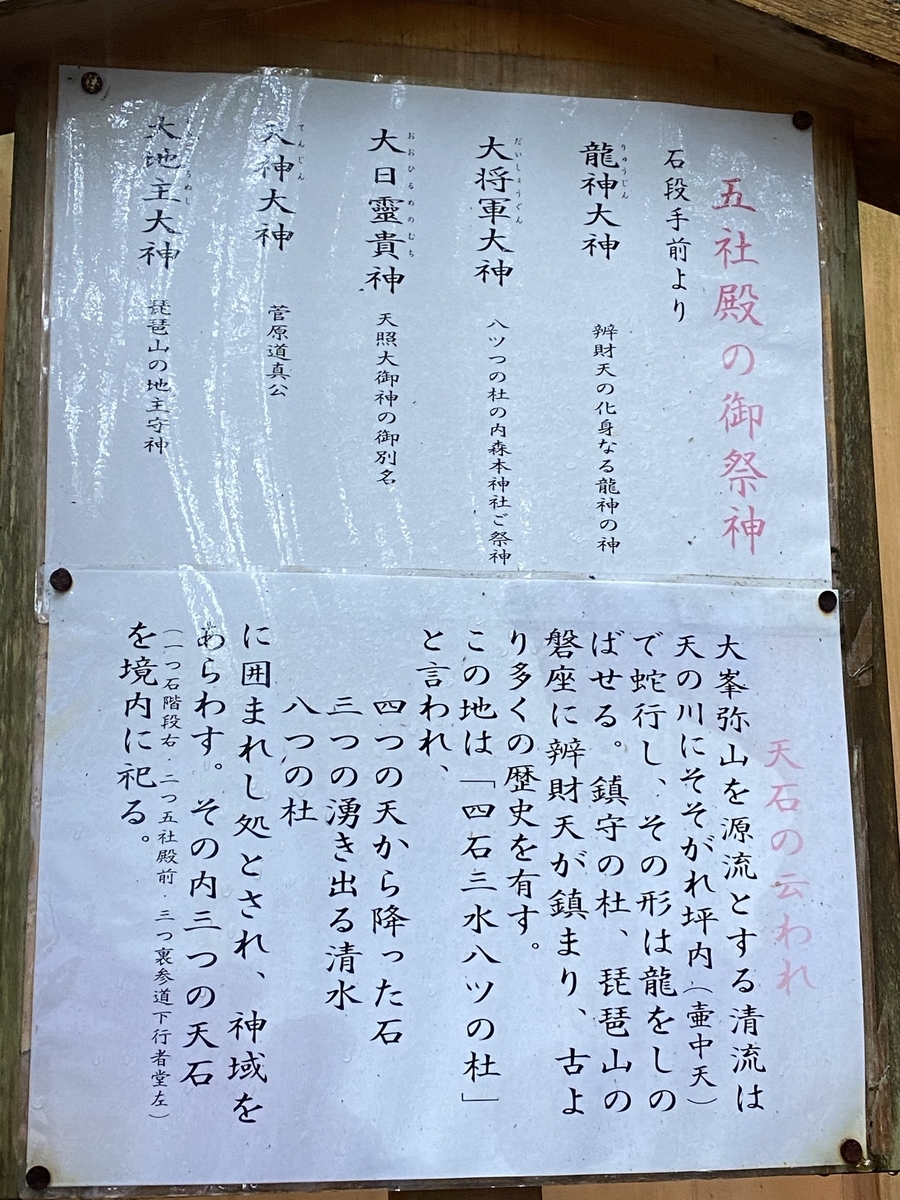 五社殿の御祭神
石段手前より
龍神大神 辨財天の化身なる龍神の神
りゅうじん
大将軍大神 八ツつの杜の内森本神社ご祭神
だいしょうぐん
大日靈貴神 天照大御神の御別名
おおひるめのむち
天神大神 菅原道真公
てんじん
大地主大神 琵琶山の地主守神
天石の云われ
大峯弥山を源流とする清流は
天の川にそそがれ坪内(壷中天)
で蛇行し、その形は龍をしの
ばせる。鎮守の杜、琵琶山の
磐座に辨財天が鎮まり、古よ
り多くの歴史を有す。
この地は「四石三水八ツの杜」
と言われ、
四つの天から降った石
三つの湧き出る清水
八つの杜
に囲まれし処とされ、神域を
あらわす。その内三つの天石
(一つ石階段右・二つ五社殿前・三つ裏参道下行者堂左)
を境内に祀る。